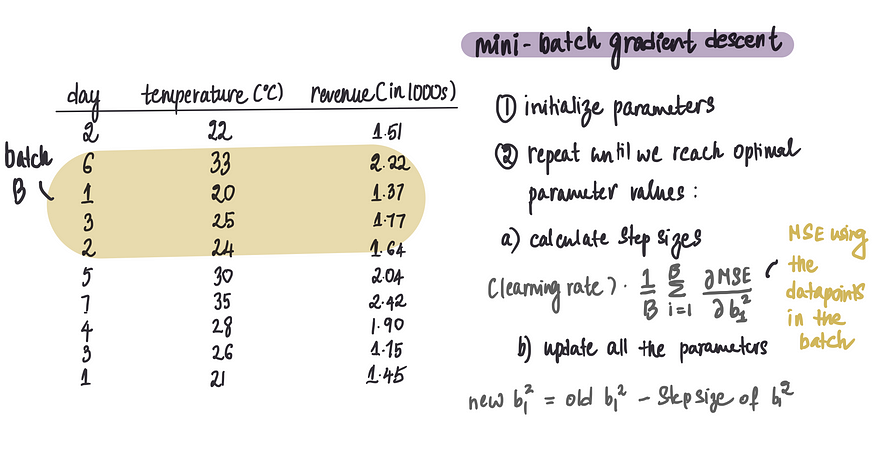 mini-batch gradient descent
day temperature (°C) revenue (in 1000s)
2 22 1.51
6 33 2.22
1 20 1.37
3 25 1.77
2 24 1.64
5 30 2.04
7 35 2.42
4 28 1.90
3 26 1.75
1 21 1.45
batch
B
① initialize parameters
② repeat until we reach optimal
parameter values:
a) calculate step sizes
(learning rate) · 1/B B Σ i=1 ∂MSE/∂b₁²
MSE using
the
datapoints
in the
batch
b) update all the parameters
new b₁² = old b₁² - step size of b₁²